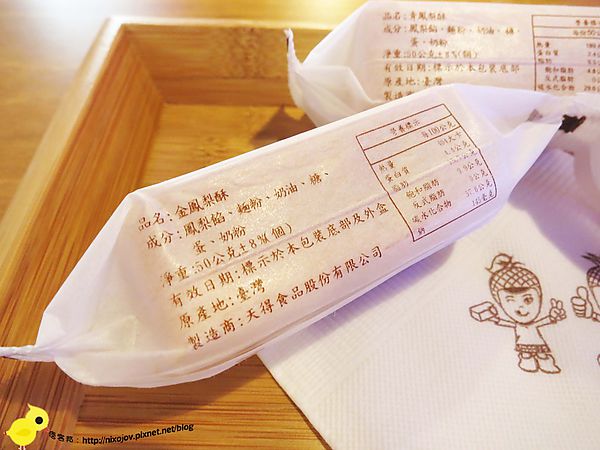 品名:青鳳梨酥
成分:鳳梨餡、麵粉、奶油、糖、
蛋、奶粉
淨重:50公克±8%(個)
有效日期:標示於本包裝底部
原產地:臺灣
製造
營養標示
每份50公
熱量
蛋白質
脂肪
飽和脂肪
反式脂肪
碳水化合物
品名:金鳳梨酥
成分:鳳梨餡、麵粉、奶油、糖、
蛋、奶粉
淨重:50公克±8%(個)
有效日期:標示於本包裝底部及外盒
原產地:臺灣
製造商:天得食品股份有限公司
營養標示
每100公克
熱量
蛋白質
脂肪
飽和脂肪
反式脂肪
碳水化合物
鈉
痞客邦:http://nixojov.pixnet.net/blog